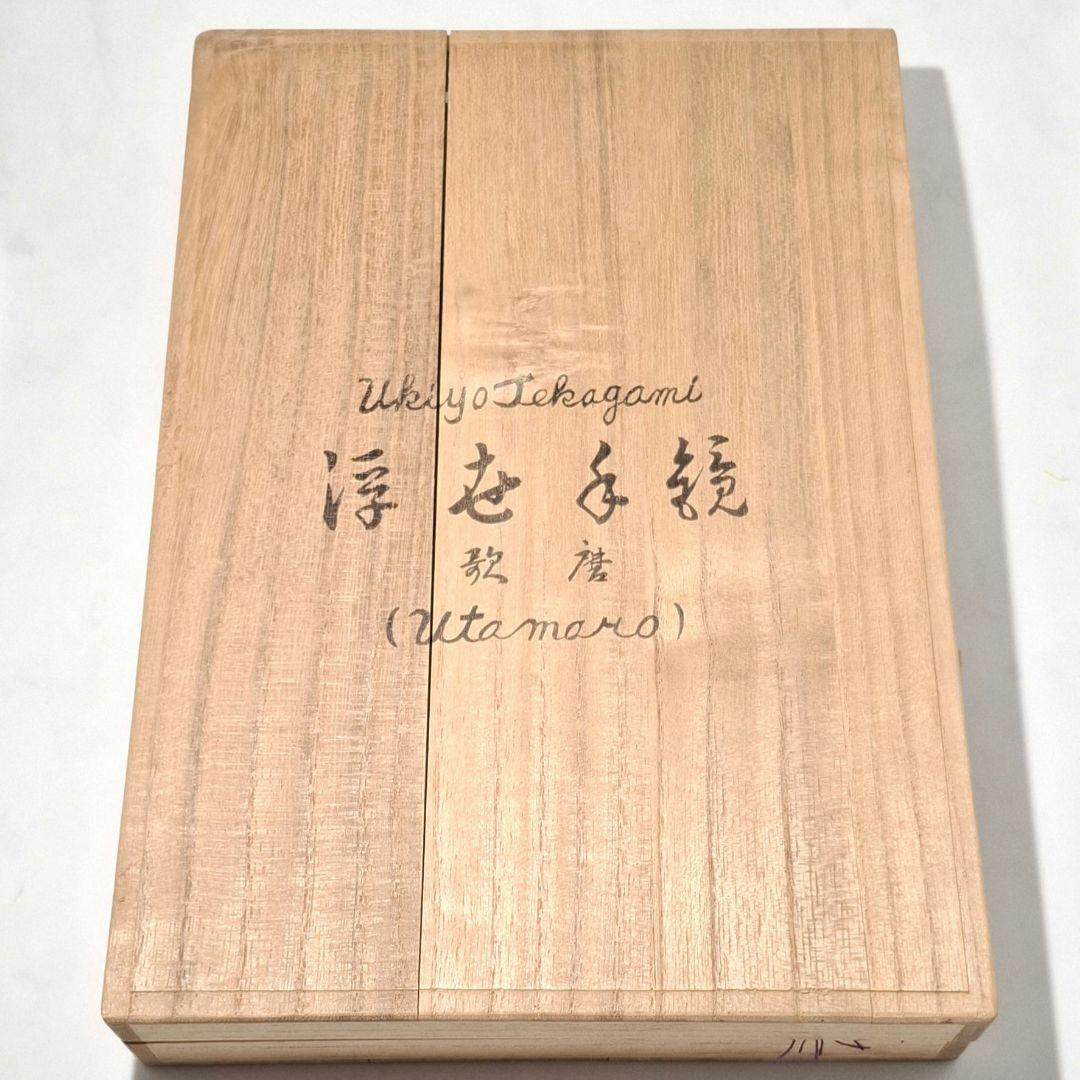 Ukiyo Tekagami
浮世手鏡
歌麿
(Utamaro)